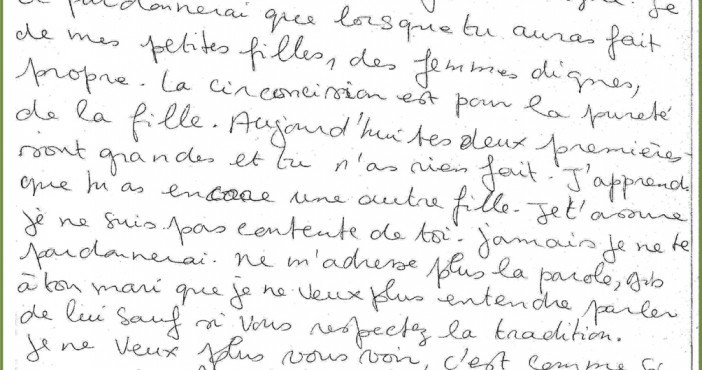 pardonnerai que lorsque tu auras fait
de mes petites filles, des femmes dignes,
propre. La circoncision est pour la pureté
de la fille. Aujourd'hui tes deux premières
sont grandes et tu n'as rien fait. J'apprends
que tu as encore une autre fille. Je t'assure
je ne suis pas contente de toi. Jamais je ne te
pardonnerai. Ne m'adresse plus la parole, dis
à ton mari que je ne veux plus entendre parler
de lui sauf si vous respectez la tradition.
Je ne veux plus vous voir, c'est comme si